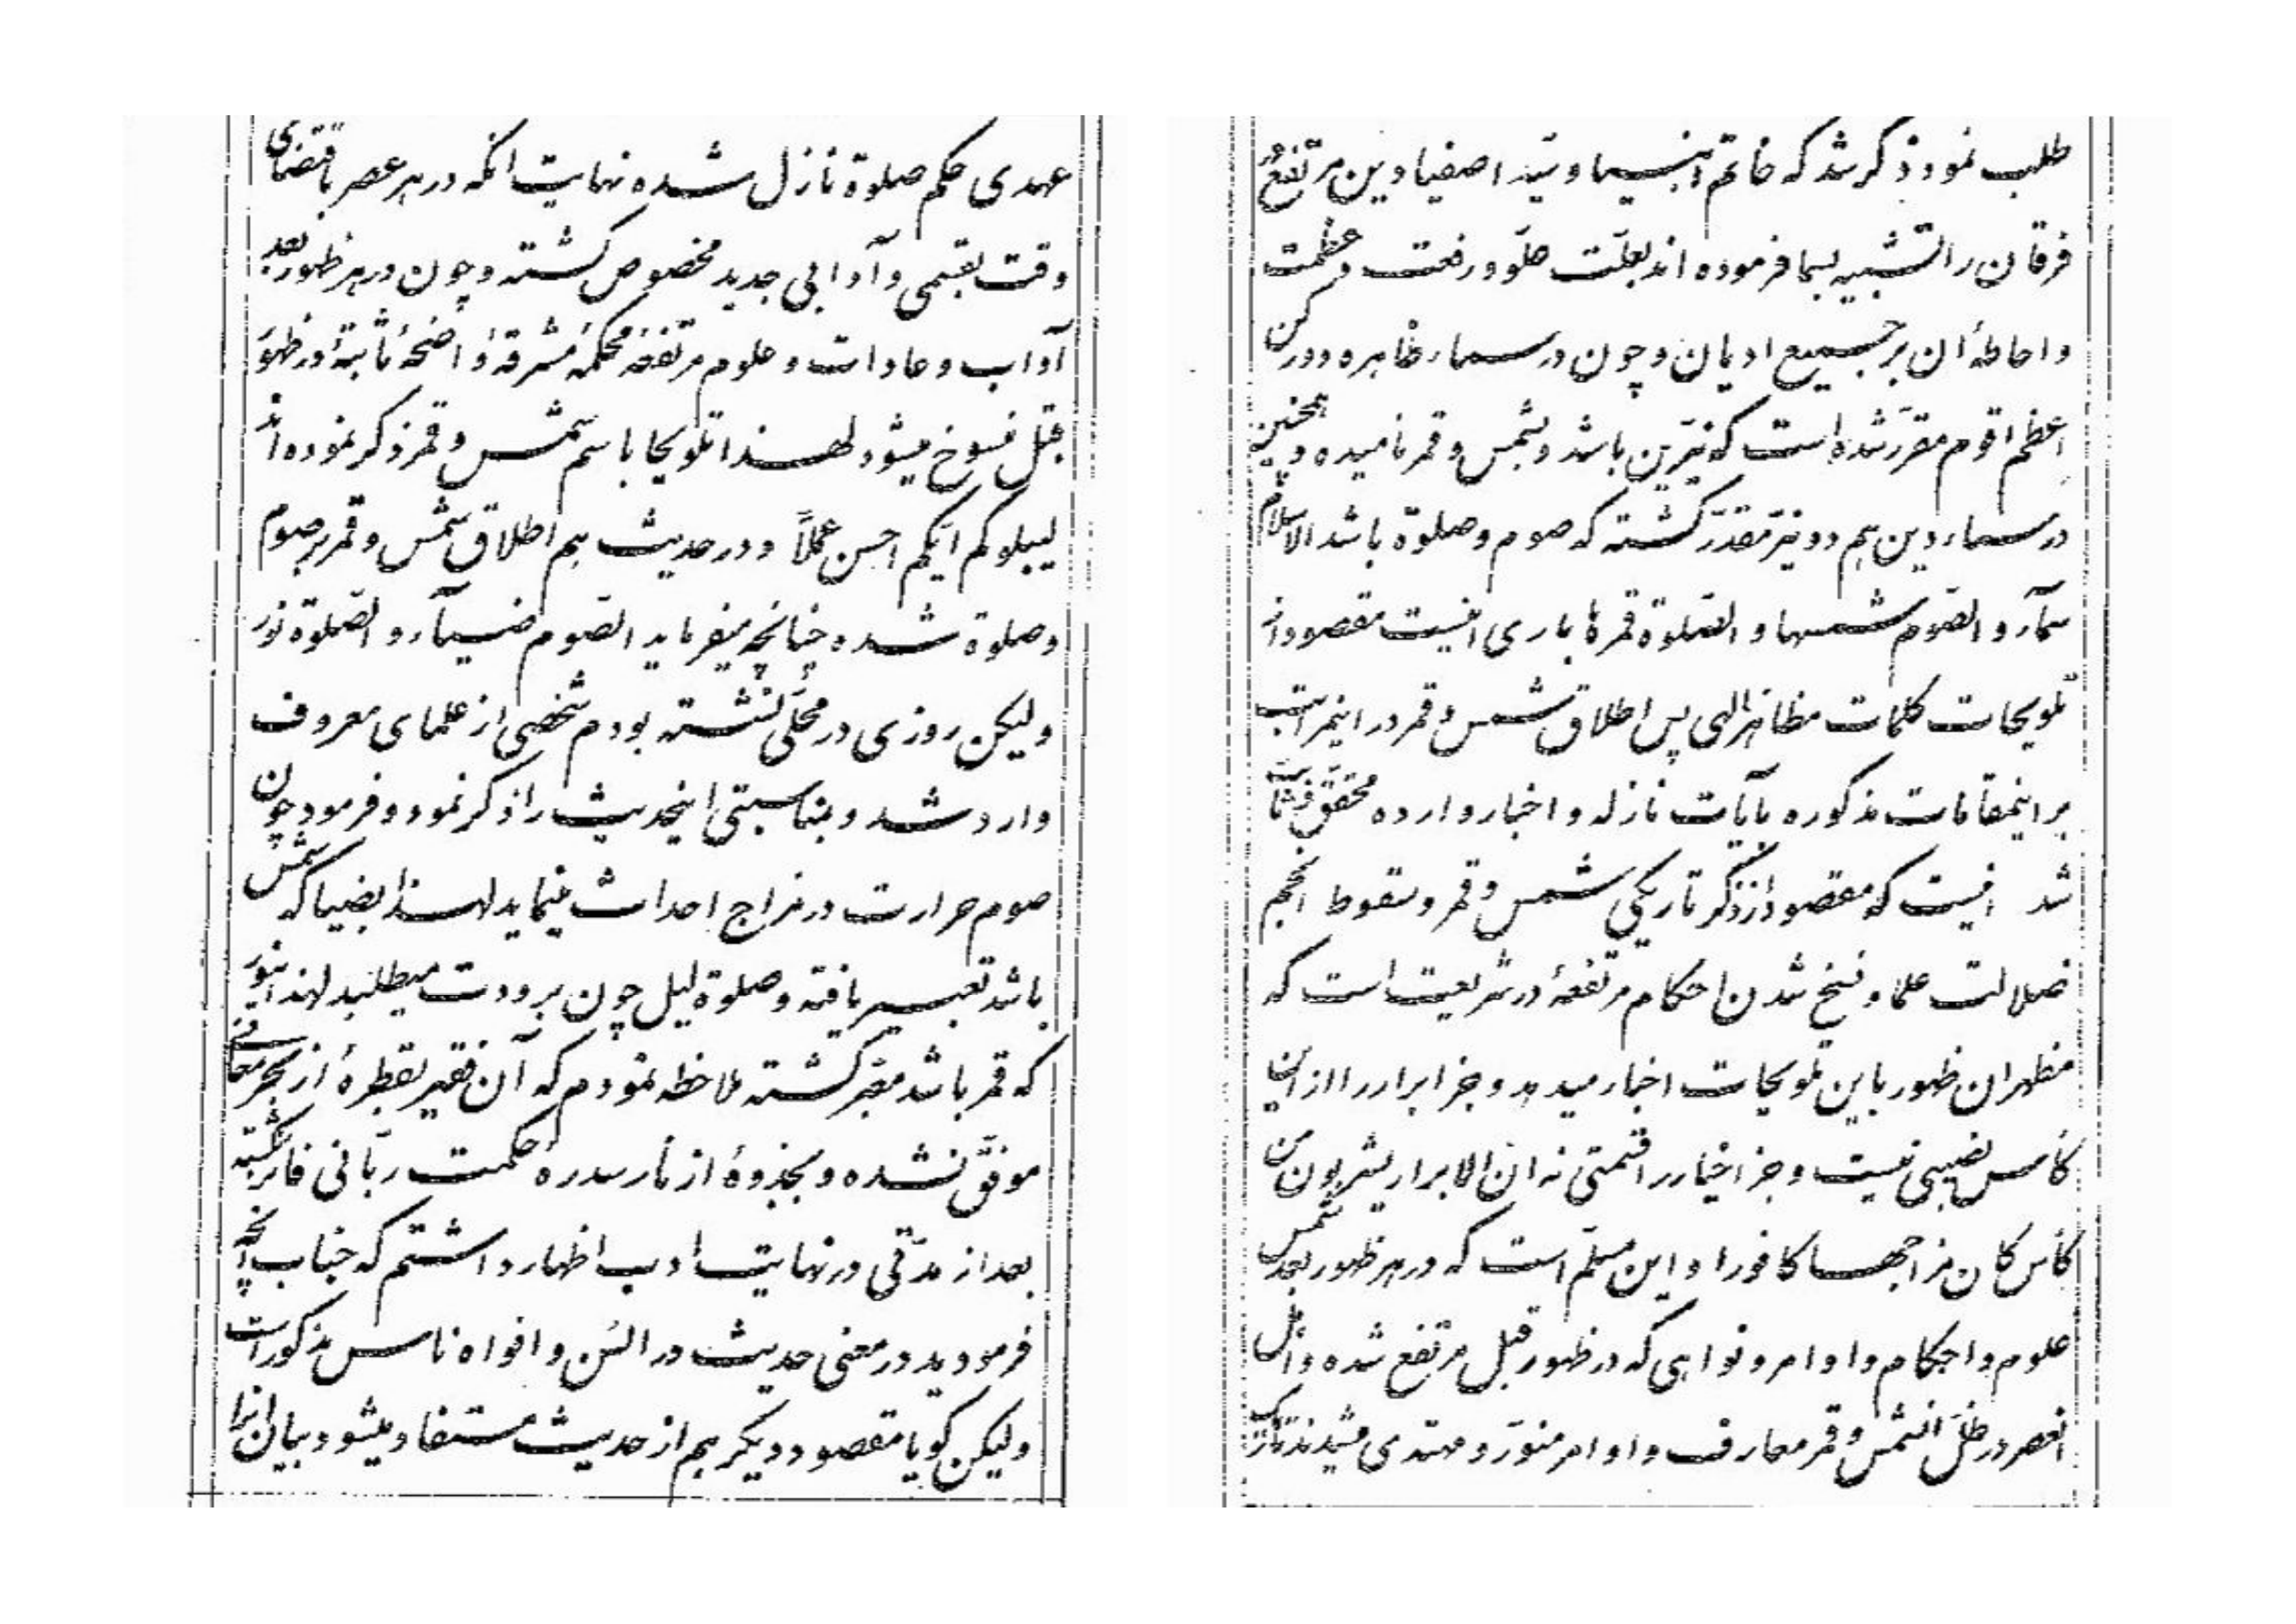 عهدی حکم صلوة نازل شده نهایت انکه در هر عصر باقتضای
وقت بقسمی و آدابی جدید مخصوص گشته و چون در هر ظهور بعد
آداب و عادات و علوم مرتفعهٔ محکمهٔ مشرقهٔ واضحهٔ ثابتهٔ در ظهور
قبل منسوخ میشود لهذا تلویحا باسم شمس و قمر ذکر نموده‌اند
لیبلوکم ایّکم احسن عملاً و در حدیث هم اطلاق شمس و قمر بر صوم
و صلوة شده چنانچه میفرماید الصّوم ضیآء و الصّلوة نور
ولیکن روزی در محلّی نشسته بودم شخصی از علمای معروف
وارد شد و بمناسبتی اینحدیث را ذکر نمود و فرمود چون
صوم حرارت در مزاج احداث مینماید لهذا بضیا که شمس
باشد تعبیر یافته و صلوة لیل چون برودت میطلبد لهذا بنور
که قمر باشد معبّر گشته ملاحظه نمودم که آن فقیر بقطرهٔ از بحر معانی
موفّق نشده و بجذوهٔ از نار سدرهٔ حکمت ربّانی فائز نگشته
بعد از مدّتی در نهایت ادب اظهار داشتم که جناب آنچه
فرمودید در معنی حدیث در السن و افواه ناس مذکور است
ولیکن گویا مقصود دیگر هم از حدیث مستفاد میشود بیان انرا
طلب نمود ذکر شد که خاتم انبیا و سیّد اصفیا دین مرتفع در
فرقان را تشبیه بسما فرموده اند بعلّت علوّ و رفعت و عظمت
و احاطهٔ ان بر جمیع ادیان و چون در سماء ظاهره دو رکن
اعظم اقوم مقرّر شده است که نیّرین باشد و بشمس و قمر نامیده و همچنین
در سماء دین هم دو نیّر مقدّر گشته که صوم و صلوة باشد الاسلام
سمآء و الصّوم شمسها و الصّلوة قمرها باری اینست مقصود از
تلویحات کلمات مظاهر الهی پس اطلاق شمس و قمر در اینمراتب
بر اینمقامات مذکوره بآیات نازله و اخبار وارده محقّق و ثابت
شد اینست که مقصود از ذکر تاریکی شمس و قمر و سقوط انجم
ضلالت علما و نسخ شدن احکام مرتفعهٔ در شریعت است که
مظهر ان ظهور باین تلویحات اخبار میدهد و جز ابرار را از این
کأس نصیبی نیست و جز اخیار را قسمتی نه انّ الابرار یشربون من
کأس کان مزاجها کافورا و این مسلّم است که در هر ظهور بعد شمس
علوم و احکام و اوامر و نواهی که در ظهور قبل مرتفع شده و اهل
انعصر در ظلّ انشمس و قمر معارف و اوامر منوّر و مهتدی میشدند تاریک